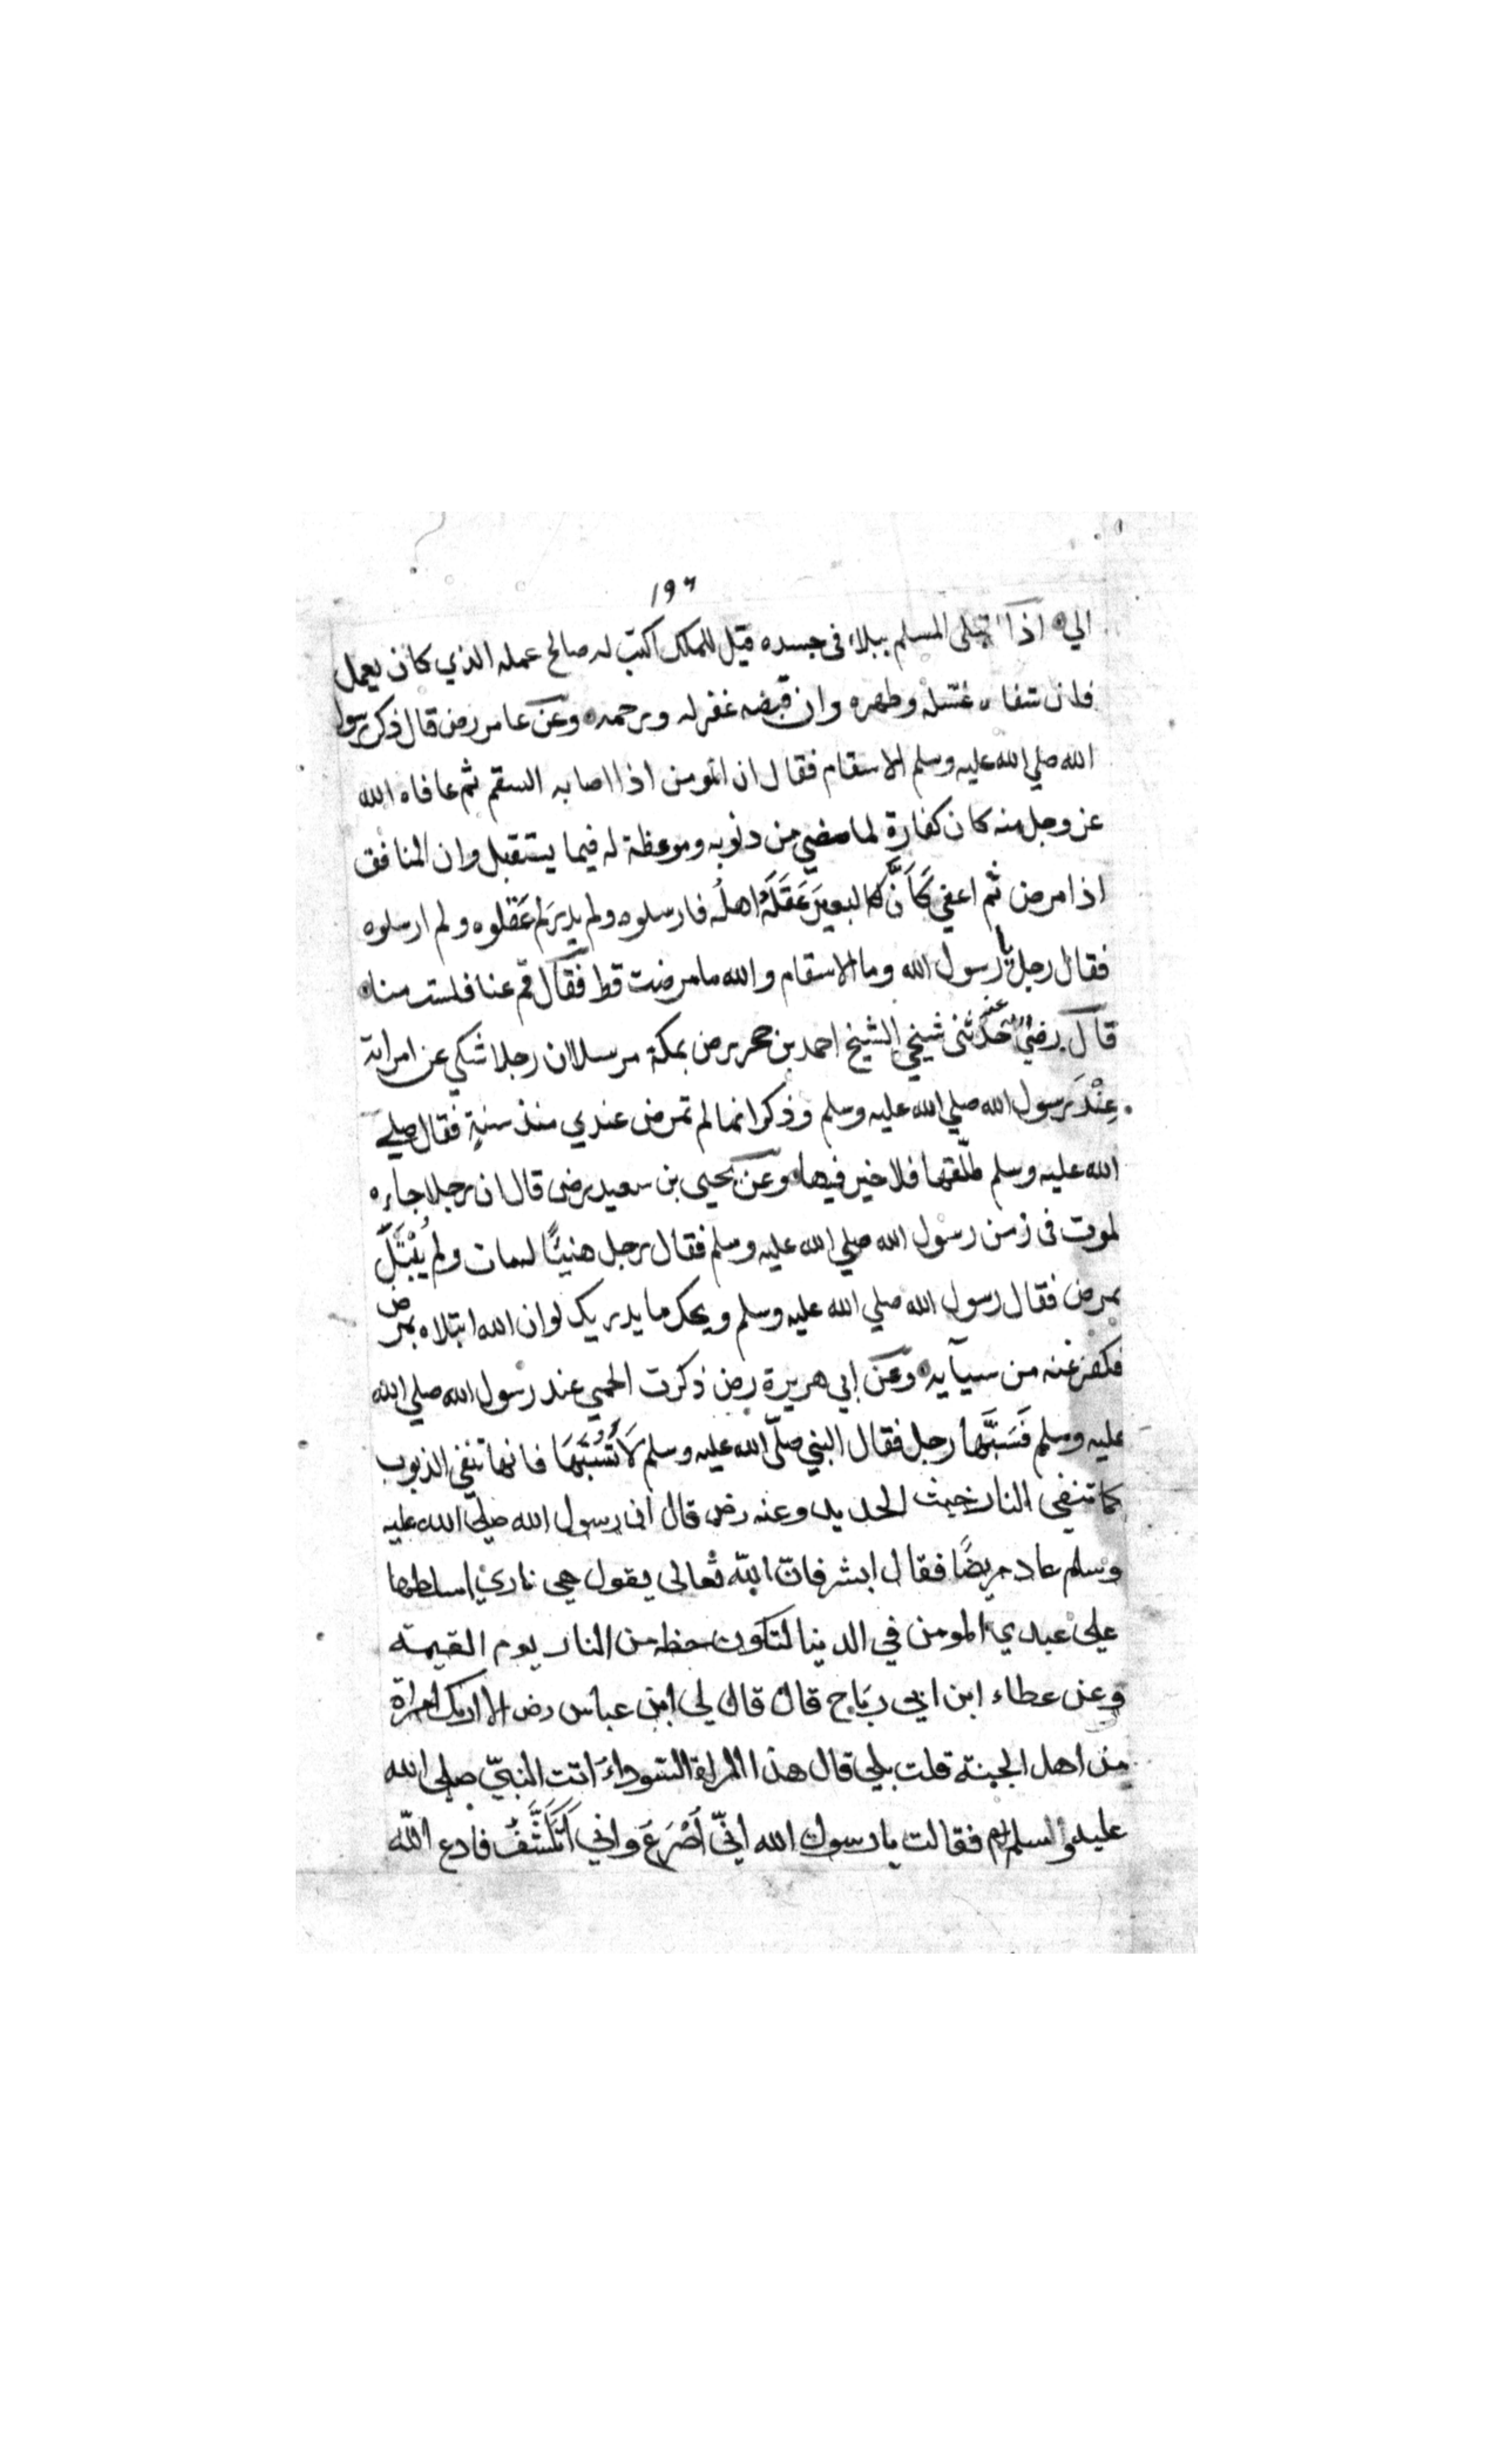 ١٩٦
الي اذا ابتلى المسلم ببلاء فى جسده قيل للملك اكتب له صالح عمله الذي كان يعمل
فان شفاه غسله وطهره وان قبضه غفر له ورحمه وعن عامر رض قال ذكر رسول
الله صلي الله عليه وسلم الاسقام فقال ان المومن اذا اصابه السقم ثم عافاه الله
عز وجل منه كان كفارة لما مضي من ذنوبه وموعظة له فيما يستقبل وان المنافق
اذا مرض ثم اعفي كَانَّ كالبعير عَقَلَهُ اهلُه فارسلوه ولم يدر لم عَقَلوه ولم ارسلوه
فقال رجل يا رسول الله وما الاسقام والله ما مرضت قط فقال قم عنا فلست منا
قال رضي عنه حدثنى شيخي الشيخ احمد بن حجر رض بمكة مرسلا ان رجلا شكي عن امراته
عِنْدَ رسول الله صلي الله عليه وسلم وذكر انها لم تمرض عندي منذ سنةٍ فقال صلي
الله عليه وسلم طلّقها فلا خير فيها وعن يحيى بن سعيد رضى قال ان رجلا جاءه
لموت فى زمن رسول الله صلي الله عليه وسلم فقال رجل هنيئًا له مات ولم يُبْتَلَ
بمرض فقال رسول الله صلي الله عليه وسلم ويحك ما يدريك لو ان الله ابتلاه بمرض
فكفر عنه من سيآيه وعن ابي هريرة رض ذكرت الحمي عند رسول الله صلي الله
عليه وسلم فَسَبَّهَا رجل فقال النبي صلّى الله عليه وسلم لَا تُسُبَّهَا فانها تنفي الذنوب
كما تنفي النار خبث الحديد وعنه رض قال ان رسول الله صلي الله عليه
وسلم عاد مريضًا فقال ابشر فان الله تعالى يقول هي ناري اسلطها
علي عبدي المومن في الدنيا لتكون حظه من النار يوم القيمة
وعن عطاء ابن ابي رَبَاح قال قال لي ابن عباس رض الا اريك امراة
من اهل الجنة قلت بلي قال هذا المراة السّوداء اتت النبيّ صلي الله
عليه وسلم فقالت يا رسول الله انيّ اُصْرَعَ واني اَتَكَشَّفُ فادع اللّه